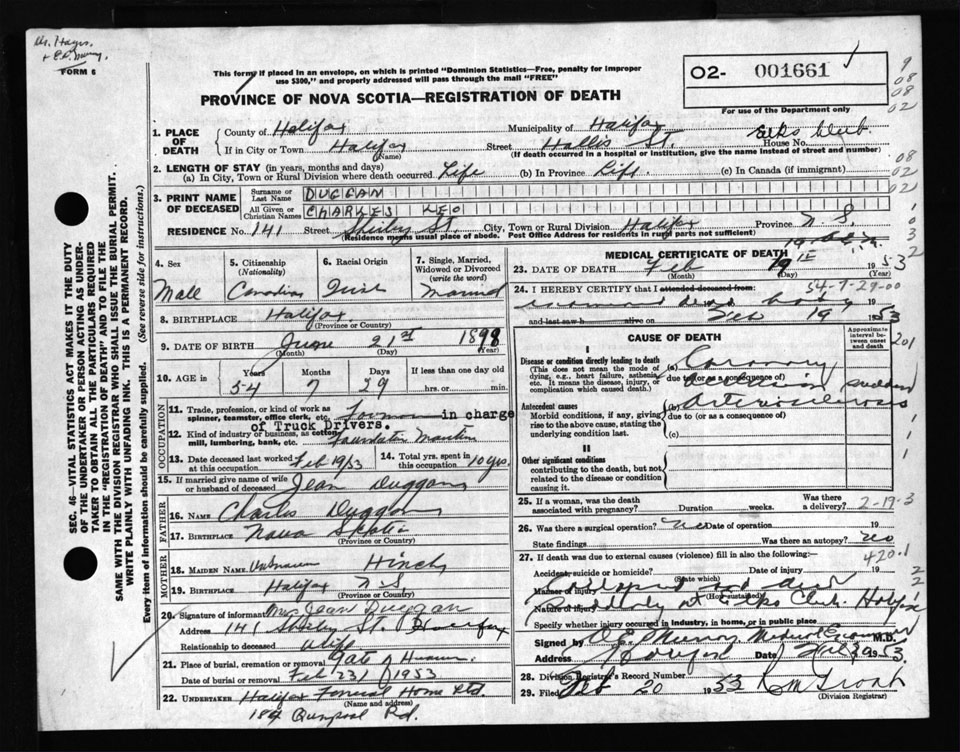 Dr. Hayes.
+ E.D. Murray.
FORM 6
This form if placed in an envelope, on which is printed "Dominion Statistics—Free, penalty for improper
use $300," and properly addressed will pass through the mail "FREE"
O2- 001661
For use of the Department only
PROVINCE OF NOVA SCOTIA—REGISTRATION OF DEATH
1. PLACE OF DEATH
County of Halifax Municipality of Halifax Elks Club.
If in City or Town Halifax (Name) Street Hollis St. House No.
(If death occurred in a hospital or institution, give the name instead of street and number)
2. LENGTH OF STAY (in years, months and days)
(a) In City, Town or Rural Division where death occurred Life (b) In Province Life. (c) In Canada (if immigrant)
3. PRINT NAME OF DECEASED
Surname or Last Name DUGGAN
All Given or Christian Names CHARLES LEO
RESIDENCE No. 141 Street Shirley St. City, Town or Rural Division Halifax Province N.S.
(Residence means usual place of abode. Post Office Address for residents in rural parts not sufficient)
4. Sex Male
5. Citizenship (Nationality) Canadian
6. Racial Origin Irish
7. Single, Married, Widowed or Divorced (write the word) Married
8. BIRTHPLACE Halifax. (Province or Country)
9. DATE OF BIRTH June 21st 1898
(Month) (Day) (Year)
10. AGE Years Months Days If less than one day old
54 7 29 hrs. or min.
OCCUPATION
11. Trade, profession, or kind of work as spinner, teamster, office clerk, etc. Foreman in charge
of Truck Drivers.
12. Kind of industry or business, as cotton mill, lumbering, bank, etc. Foundation Maritime
13. Date deceased last worked at this occupation Feb 19/53
14. Total yrs. spent in this occupation 10 yrs.
15. If married give name of wife or husband of deceased Jean Duggan
FATHER
16. NAME Charles Duggan
17. BIRTHPLACE Nova Scotia
(Province or Country)
MOTHER
18. MAIDEN NAME Unknown Hinch
19. BIRTHPLACE Halifax N S
(Province or Country)
20. Signature of informant Mrs Jean Duggan
Address 141 Shirley St. Halifax
Relationship to deceased wife
21. Place of burial, cremation or removal Gate of Heaven.
Date of burial or removal Feb 23/1953
22. UNDERTAKER Halifax Funeral Home Ltd.
(Name and address)
184 Quinpool Rd.
MEDICAL CERTIFICATE OF DEATH
23. DATE OF DEATH Feb 19 1953
(Month) (Day) (Year)
24. I HEREBY CERTIFY that I attended deceased from: 54-7-29-00
examined dead body
and last saw h alive on Feb 19 1953
CAUSE OF DEATH
Approximate interval between onset and death
I
Disease or condition directly leading to death
(This does not mean the mode of dying, e.g., heart failure, asthenia, etc. It means the disease, injury, or complication which caused death.)
(a) Coronary
due to (or as a consequence of)
Occlusion sudden
Antecedent causes
Morbid conditions, if any, giving rise to the above cause, stating the underlying condition last.
(b) Arteriosclerosis
due to (or as a consequence of)
(c)
II
Other significant conditions
contributing to the death, but not related to the disease or condition causing it.
25. If a woman, was the death associated with pregnancy? Duration weeks. Was there a delivery? 2-19-3
26. Was there a surgical operation? No Date of operation 19
State findings Was there an autopsy? No
420.1
27. If death was due to external causes (violence) fill in also the following:
Accident, suicide or homicide? (State which) Date of injury 19
Manner of injury dropped dead
(How sustained)
Nature of injury suddenly at Elks Club. Halifax
Specify whether injury occurred in industry, in home, or in public place
Signed by E.D. Murray Medical Examiner M.D.
Address Halifax Date 1953
28. Division Registrar's Record Number
29. Filed Feb 20 1953
(Division Registrar)
SEC. 46—VITAL STATISTICS ACT MAKES IT THE DUTY
OF THE UNDERTAKER OR PERSON ACTING AS UNDER-
TAKER TO OBTAIN ALL THE PARTICULARS REQUIRED
IN THE "REGISTRATION OF DEATH" AND TO FILE THE
SAME WITH THE DIVISION REGISTRAR WHO SHALL ISSUE THE BURIAL PERMIT.
WRITE PLAINLY WITH UNFADING INK. THIS IS A PERMANENT RECORD.
Every item of information should be carefully supplied. (See reverse side for instructions.)